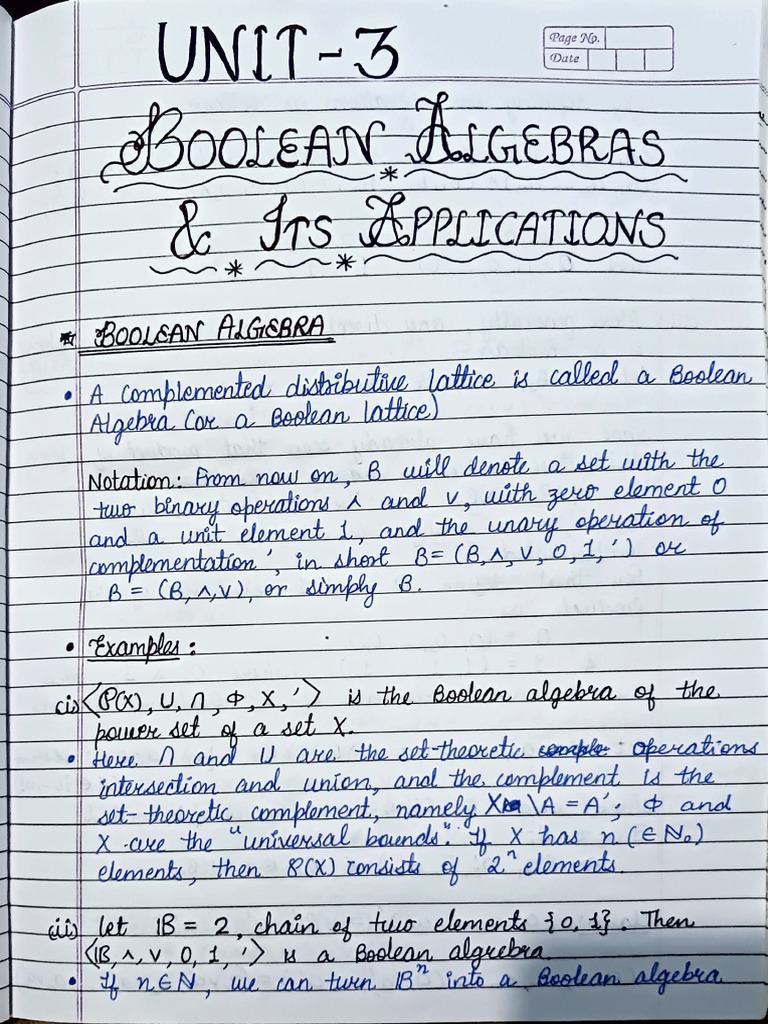 UNIT-3
Page No.
Date
BOOLEAN ALGEBRAS
& ITS APPLICATIONS
* BOOLEAN ALGEBRA
• A complemented distributive lattice is called a Boolean
Algebra (or a Boolean lattice)
Notation: From now on, B will denote a set with the
two binary operations ∧ and ∨, with zero element 0
and a unit element 1, and the unary operation of
complementation ', in short B = (B, ∧, ∨, 0, 1, ') or
B = (B, ∧, ∨), or simply B.
• Examples:
(i) ⟨P(X), U, ∩, Φ, X, '⟩ is the Boolean algebra of the
power set of a set X.
• Here ∩ and U are the set-theoretic operations
intersection and union, and the complement is the
set-theoretic complement, namely X \ A = A'; Φ and
X are the "universal bounds". If X has n (∈ N₀)
elements, then P(X) consists of 2ⁿ elements.
(ii) let IB = 2, chain of two elements {0, 1}. Then
⟨IB, ∧, ∨, 0, 1, '⟩ is a Boolean algebra
• If n ∈ N, we can turn IBⁿ into a Boolean algebra